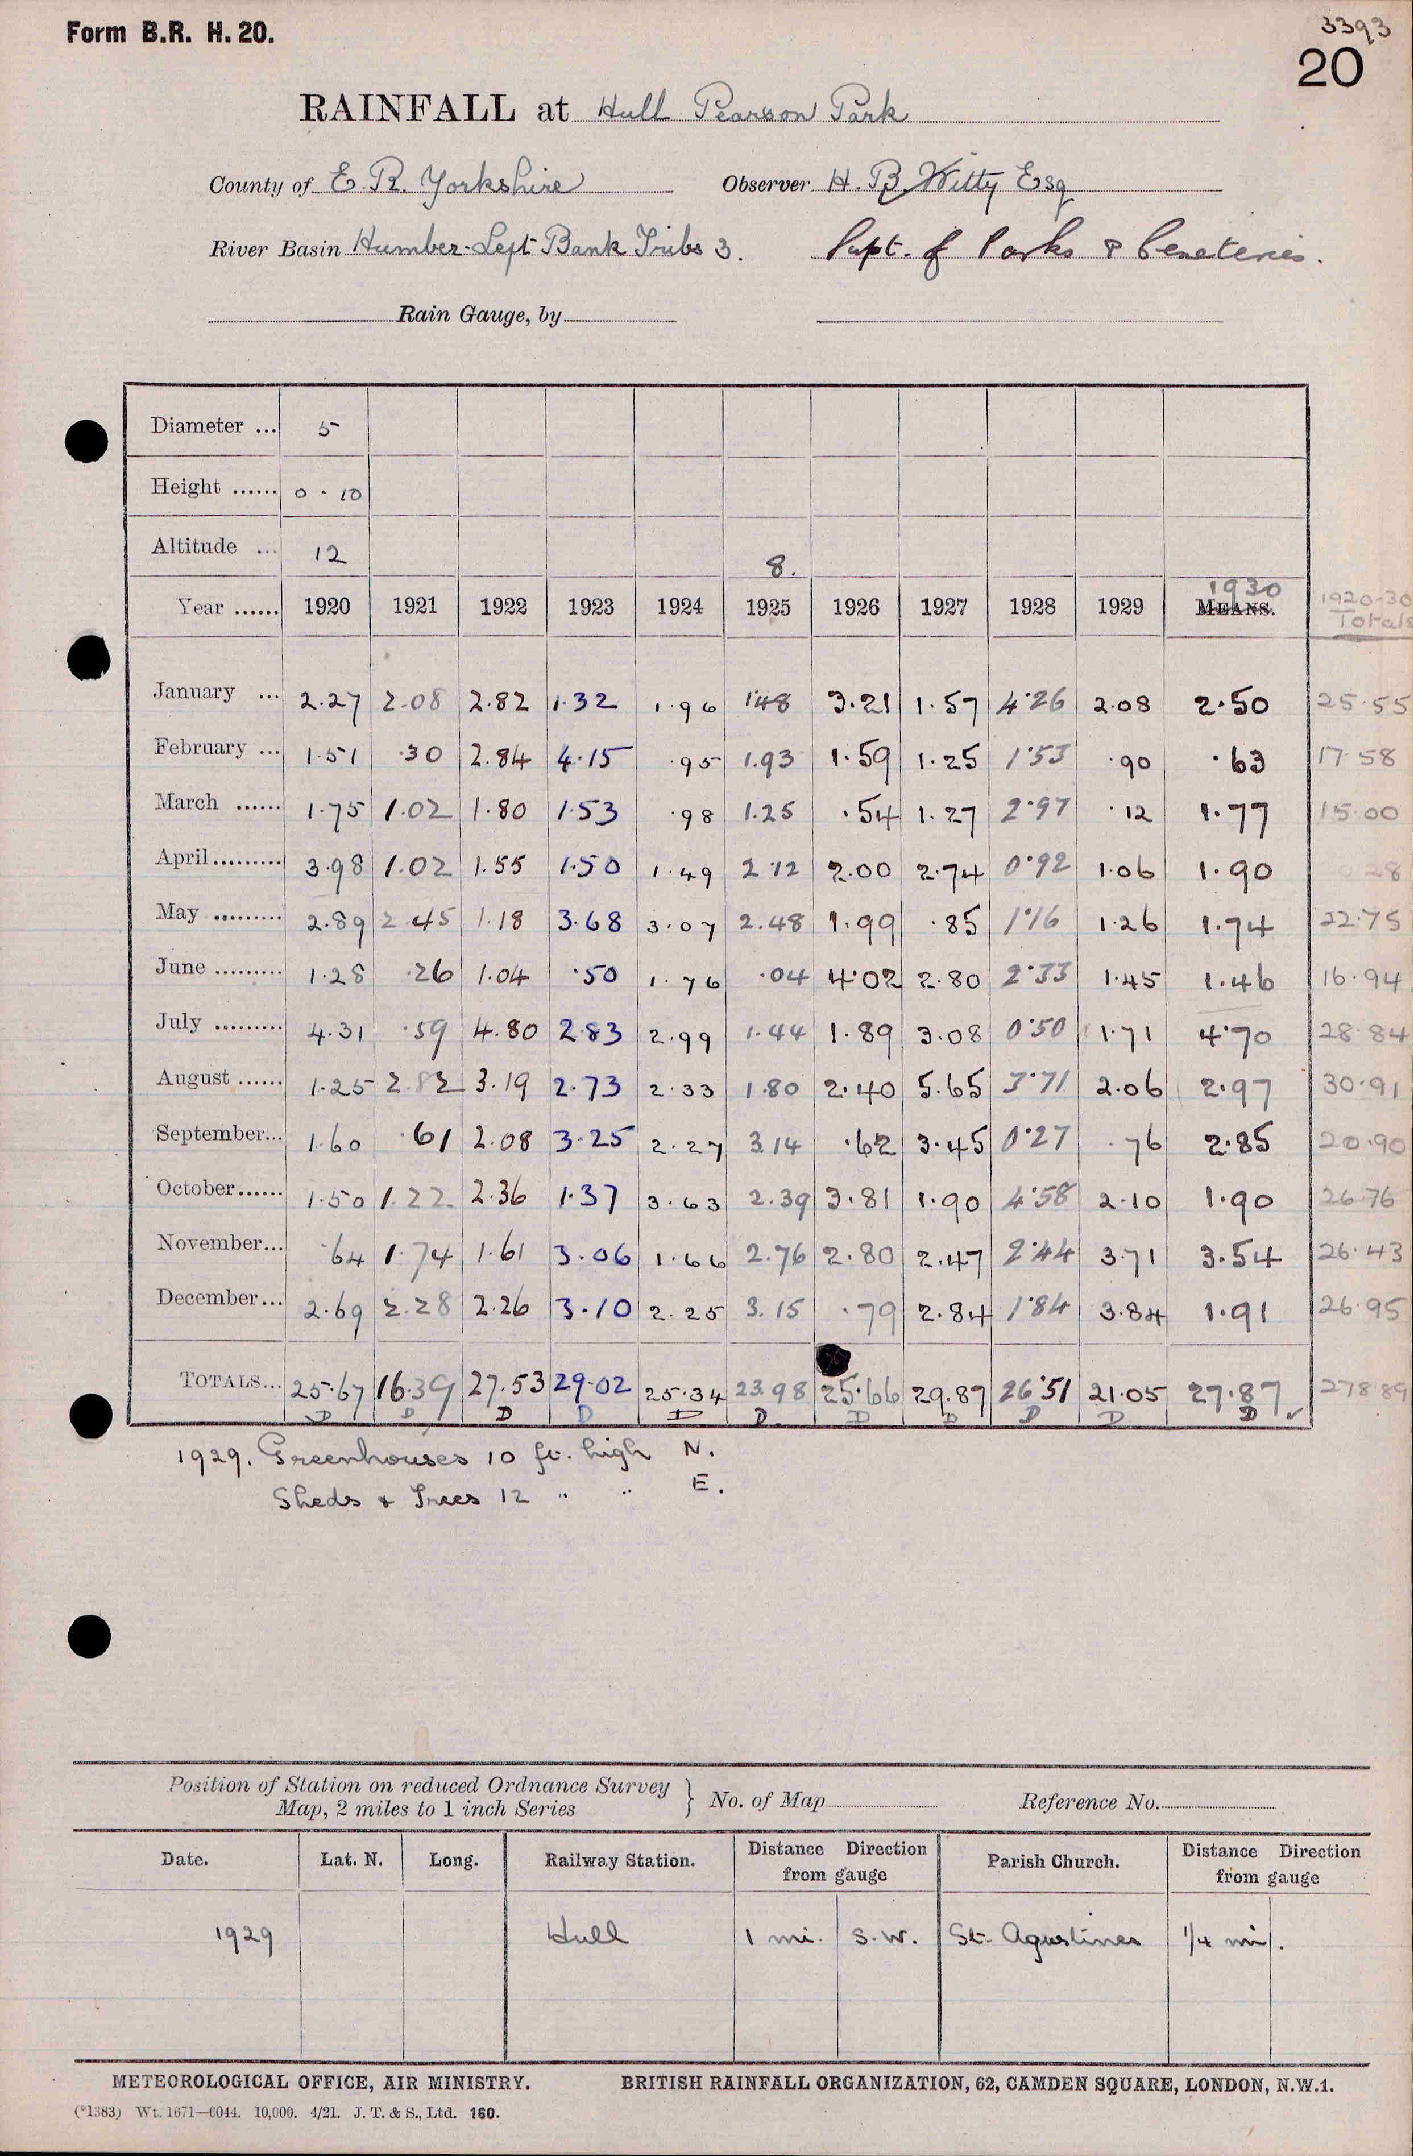 Form B.R. H. 20.
3393
20
RAINFALL at Hull Pearson Park
County of E. R. Yorkshire Observer H. B. Witty Esq
River Basin Humber-Left Bank Tribs 3. Supt. of Parks & Cemeteries.
Rain Gauge, by
Diameter ... 5
Height ...... 0 . 10
Altitude ... 12 8.
Year ...... 1920 1921 1922 1923 1924 1925 1926 1927 1928 1929 MEANS. 1930 1920-30 Totals
January ... 2.27 2.08 2.82 1.32 1.96 1.48 3.21 1.57 4.26 2.08 2.50 25.55
February ... 1.51 .30 2.84 4.15 .95 1.93 1.59 1.25 1.53 .90 .63 17.58
March ...... 1.75 1.02 1.80 1.53 .98 1.25 .54 1.27 2.97 .12 1.77 15.00
April ......... 3.98 1.02 1.55 1.50 1.49 2.12 2.00 2.74 0.92 1.06 1.90 28
May ......... 2.89 2.45 1.18 3.68 3.07 2.48 1.99 .85 1.16 1.26 1.74 22.75
June ......... 1.28 .26 1.04 .50 1.76 .04 4.02 2.80 2.33 1.45 1.46 16.94
July ......... 4.31 .59 4.80 2.83 2.99 1.44 1.89 3.08 0.50 1.71 4.70 28.84
August ...... 1.25 2.82 3.19 2.73 2.33 1.80 2.40 5.65 3.71 2.06 2.97 30.91
September... 1.60 .61 2.08 3.25 2.27 3.14 .62 3.45 0.27 .76 2.85 20.90
October...... 1.50 1.22 2.36 1.37 3.63 2.39 3.81 1.90 4.58 2.10 1.90 26.76
November... .64 1.74 1.61 3.06 1.66 2.76 2.80 2.47 2.44 3.71 3.54 26.43
December... 2.69 2.28 2.26 3.10 2.25 3.15 .79 2.84 1.84 3.84 1.91 26.95
TOTALS... 25.67 16.39 27.53 29.02 25.34 23.98 25.66 29.87 26.51 21.05 27.87 278.89
D D D D D D D D D D D ✓
1929. Greenhouses 10 ft. high N.
Sheds & Trees 12 " " E.
Position of Station on reduced Ordnance Survey
Map, 2 miles to 1 inch Series } No. of Map Reference No.
Date. Lat. N. Long. Railway Station. Distance Direction from gauge Parish Church. Distance Direction from gauge
1929 Hull 1 mi. S.W. St. Agustines 1/4 mi.
METEOROLOGICAL OFFICE, AIR MINISTRY. BRITISH RAINFALL ORGANIZATION, 62, CAMDEN SQUARE, LONDON, N.W.1.
(*1383) Wt. 1671—6044. 10,000. 4/21. J. T. & S., Ltd. 160.